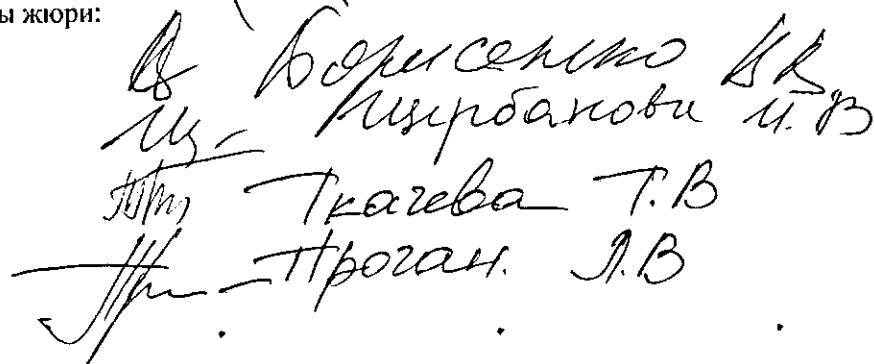 ы жюри:
Борисенко В.В.
Щербакова И.В
Ткачева Т.В
Проган. Л.В